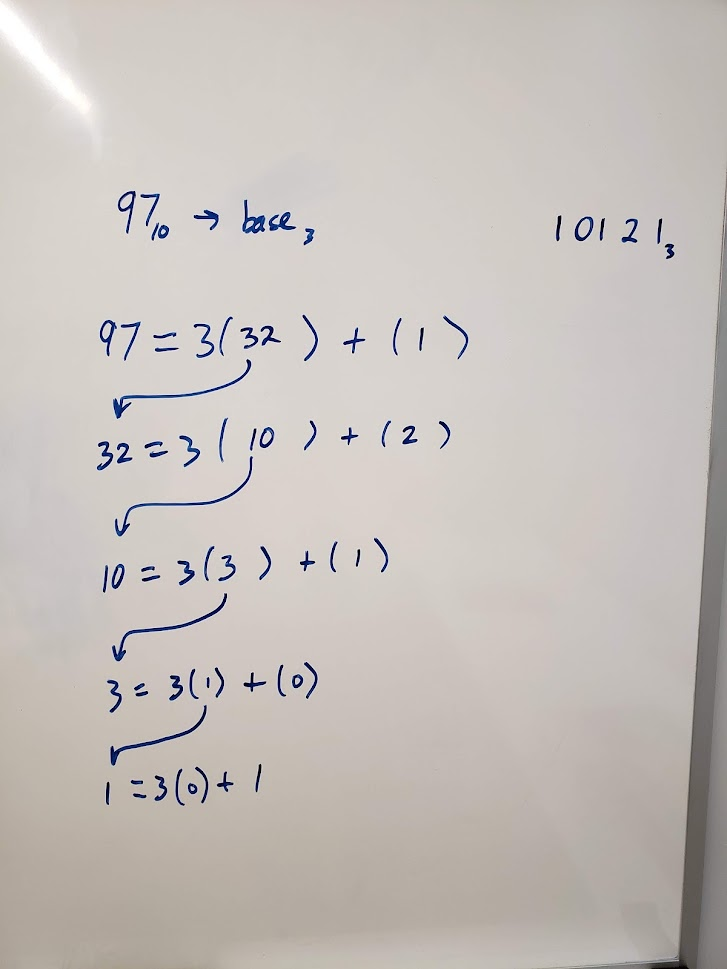 97₁₀ → base₃
10121₃
97 = 3(32) + (1)
32 = 3(10) + (2)
10 = 3(3) + (1)
3 = 3(1) + (0)
1 = 3(0) + 1